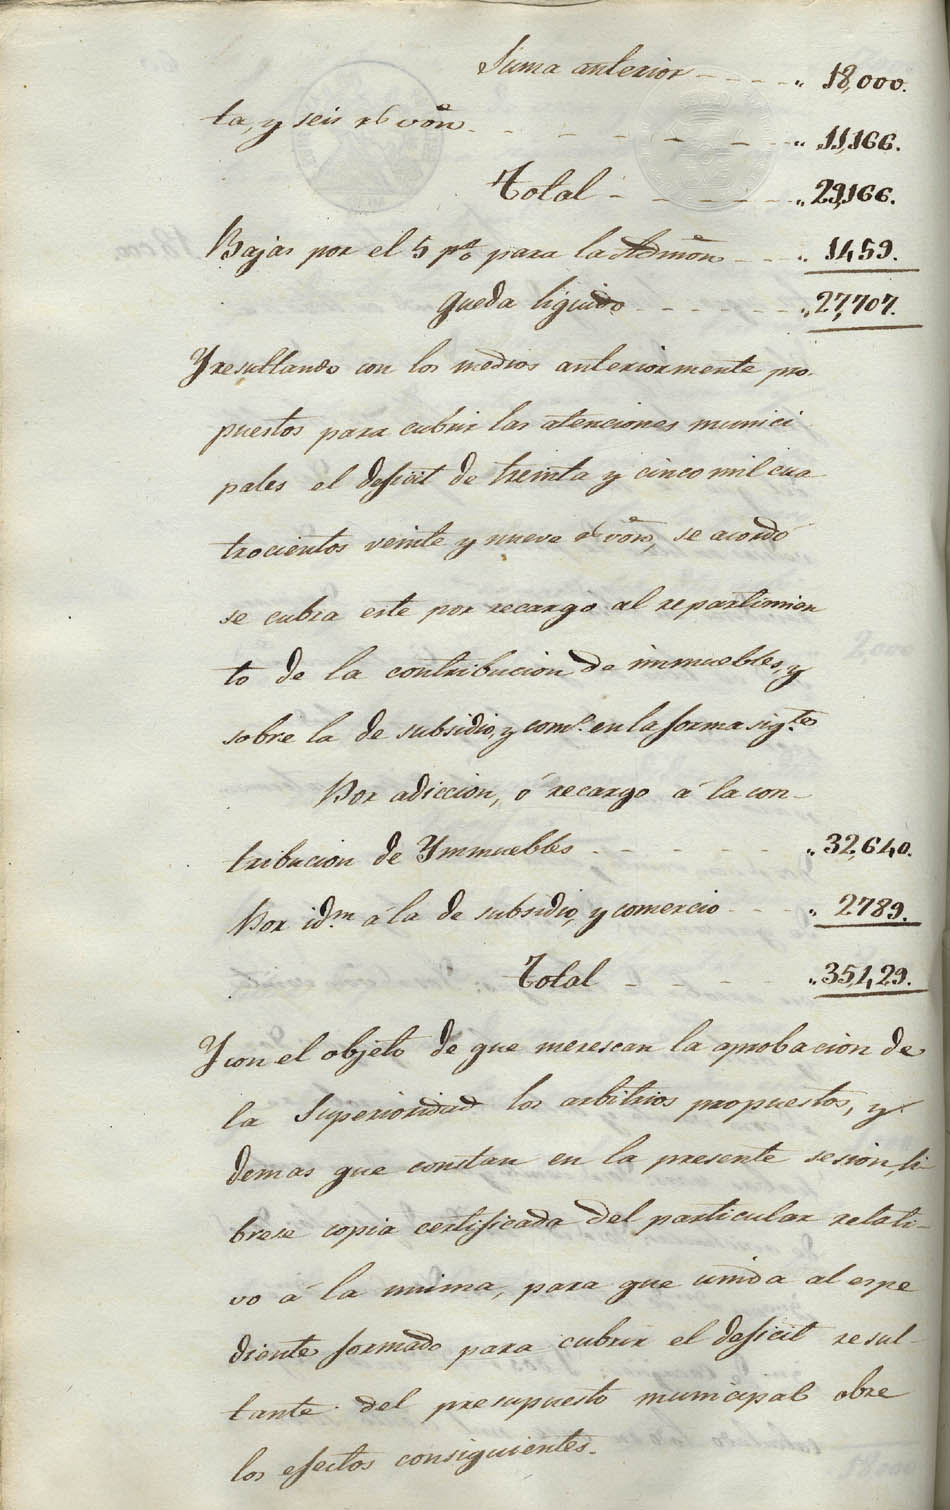 Suma anterior - - - - „ 18,000.
ta, y seis r.s von - - - - - - „ 11,166.
Total - - - - - - „ 29,166.
Bajas por el 5 p% para la Admon - - - „ 1459.
queda liquido - - - - - - „ 27,707.
Y resultando con los medios anteriormente pro-
puestos para cubrir las atenciones munici
pales el deficit de treinta y cinco mil cua
trocientos veinte y nueve r.s von, se acordó
se cubra este por recargo al repartimien
to de la contribucion de immuebles, y
sobre la de subsidio, y com.o en la forma sig.te
Por adiccion, ó recargo á la con-
tribucion de Ymmuebles - - - - - - „ 32,640.
Por id.m á la de subsidio, y comercio - - - „ 2789.
Total - - - - - „ 35,429.
Y con el objeto de que merescan la aprobacion de
la Superioridad los arbitrios propuestos, y
demas que constan en la presente sesion, li-
brese copia certificada del particular relati-
vo á la misma, para que unida al espe
diente formado para cubrir el deficit resul-
tante del presupuesto municipal obre
los efectos consiguientes.